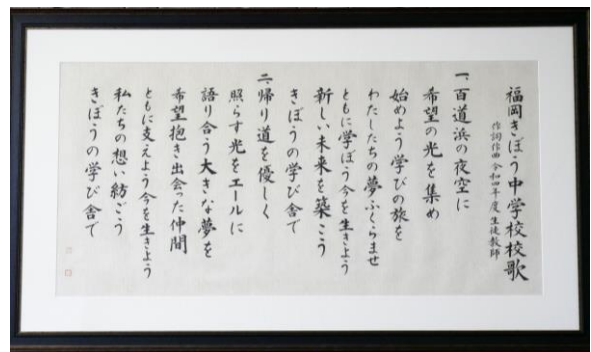 福岡きぼう中学校校歌
作詞作曲 令和四年度生徒教師
一、百道浜の夜空に
希望の光を集め
始めよう学びの旅を
わたしたちの夢ふくらませ
ともに学ぼう今を生きよう
新しい未来を築こう
きぼうの学び舎で
二、帰り道を優しく
照らす光をエールに
語り合う大きな夢を
希望抱き出会った仲間
ともに支えよう今を生きよう
私たちの想い紡ごう
きぼうの学び舎で